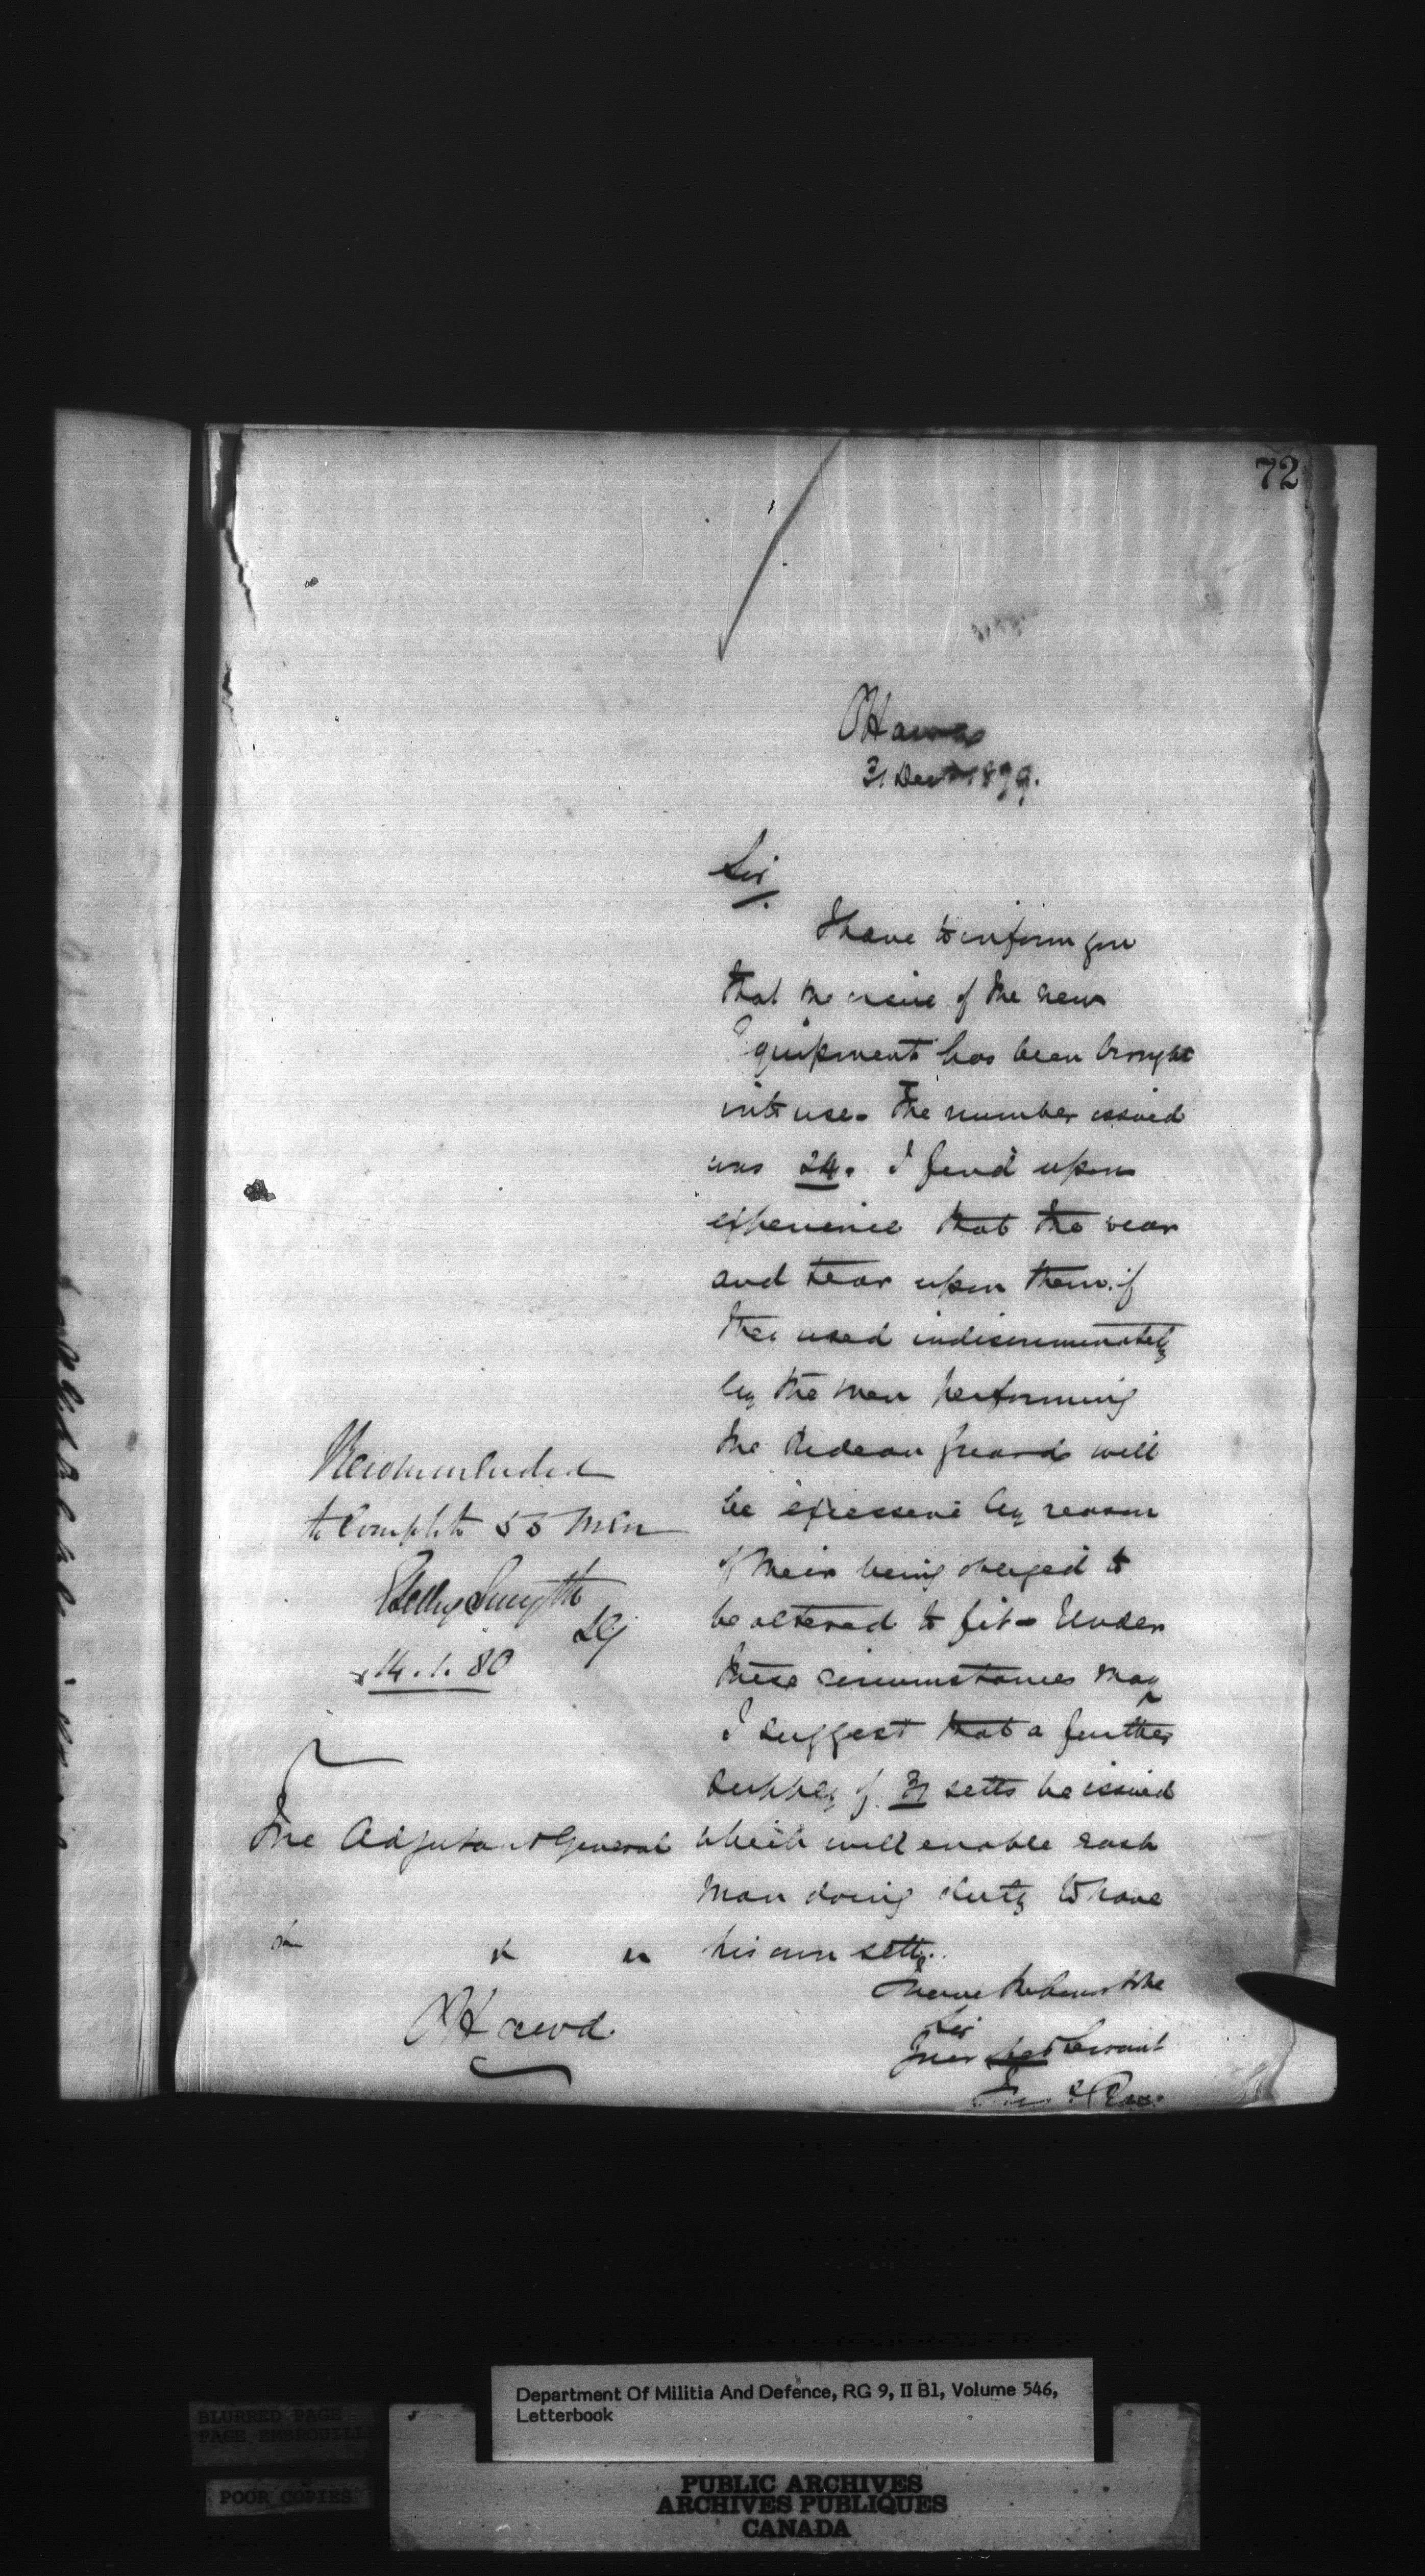 72
Ottawa
31 Dec 1879.
Sir
I have to inform you
that the issue of the new
Equipment has been brought
into use. The number issued
was 24. I find upon
experience that the wear
and tear upon them if
they used indiscriminately
by the men performing
the Rideau Guard will
be excessive by reason
of their being obliged to
be altered to fit - Under
these circumstances may
I suggest that a further
supply of 31 setts be issued
which will enable each
man doing duty to have
his own sett.
I have the honor to be
Sir
Your Obt Servant
Recommended
to Complete 55 Men
Selby Smyth
LG
14.1.80
The Adjutant General
Ottawa
Department Of Militia And Defence, RG 9, II B1, Volume 546,
Letterbook
BLURRED PAGE
PAGE EMBROUILLÉE
POOR COPIES
PUBLIC ARCHIVES
ARCHIVES PUBLIQUES
CANADA